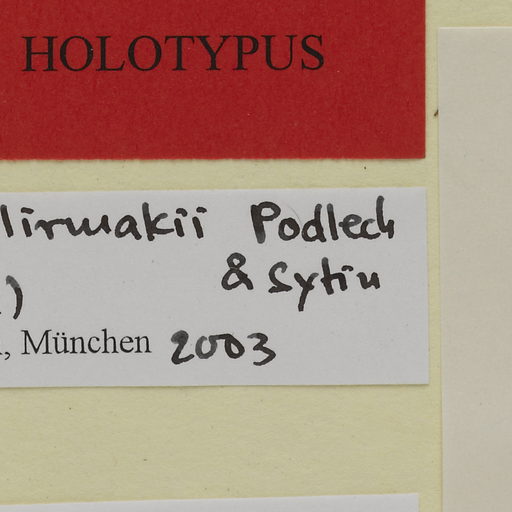 HOLOTYPUS
lirmakii Podlech
& Sytin
)
, München 2003